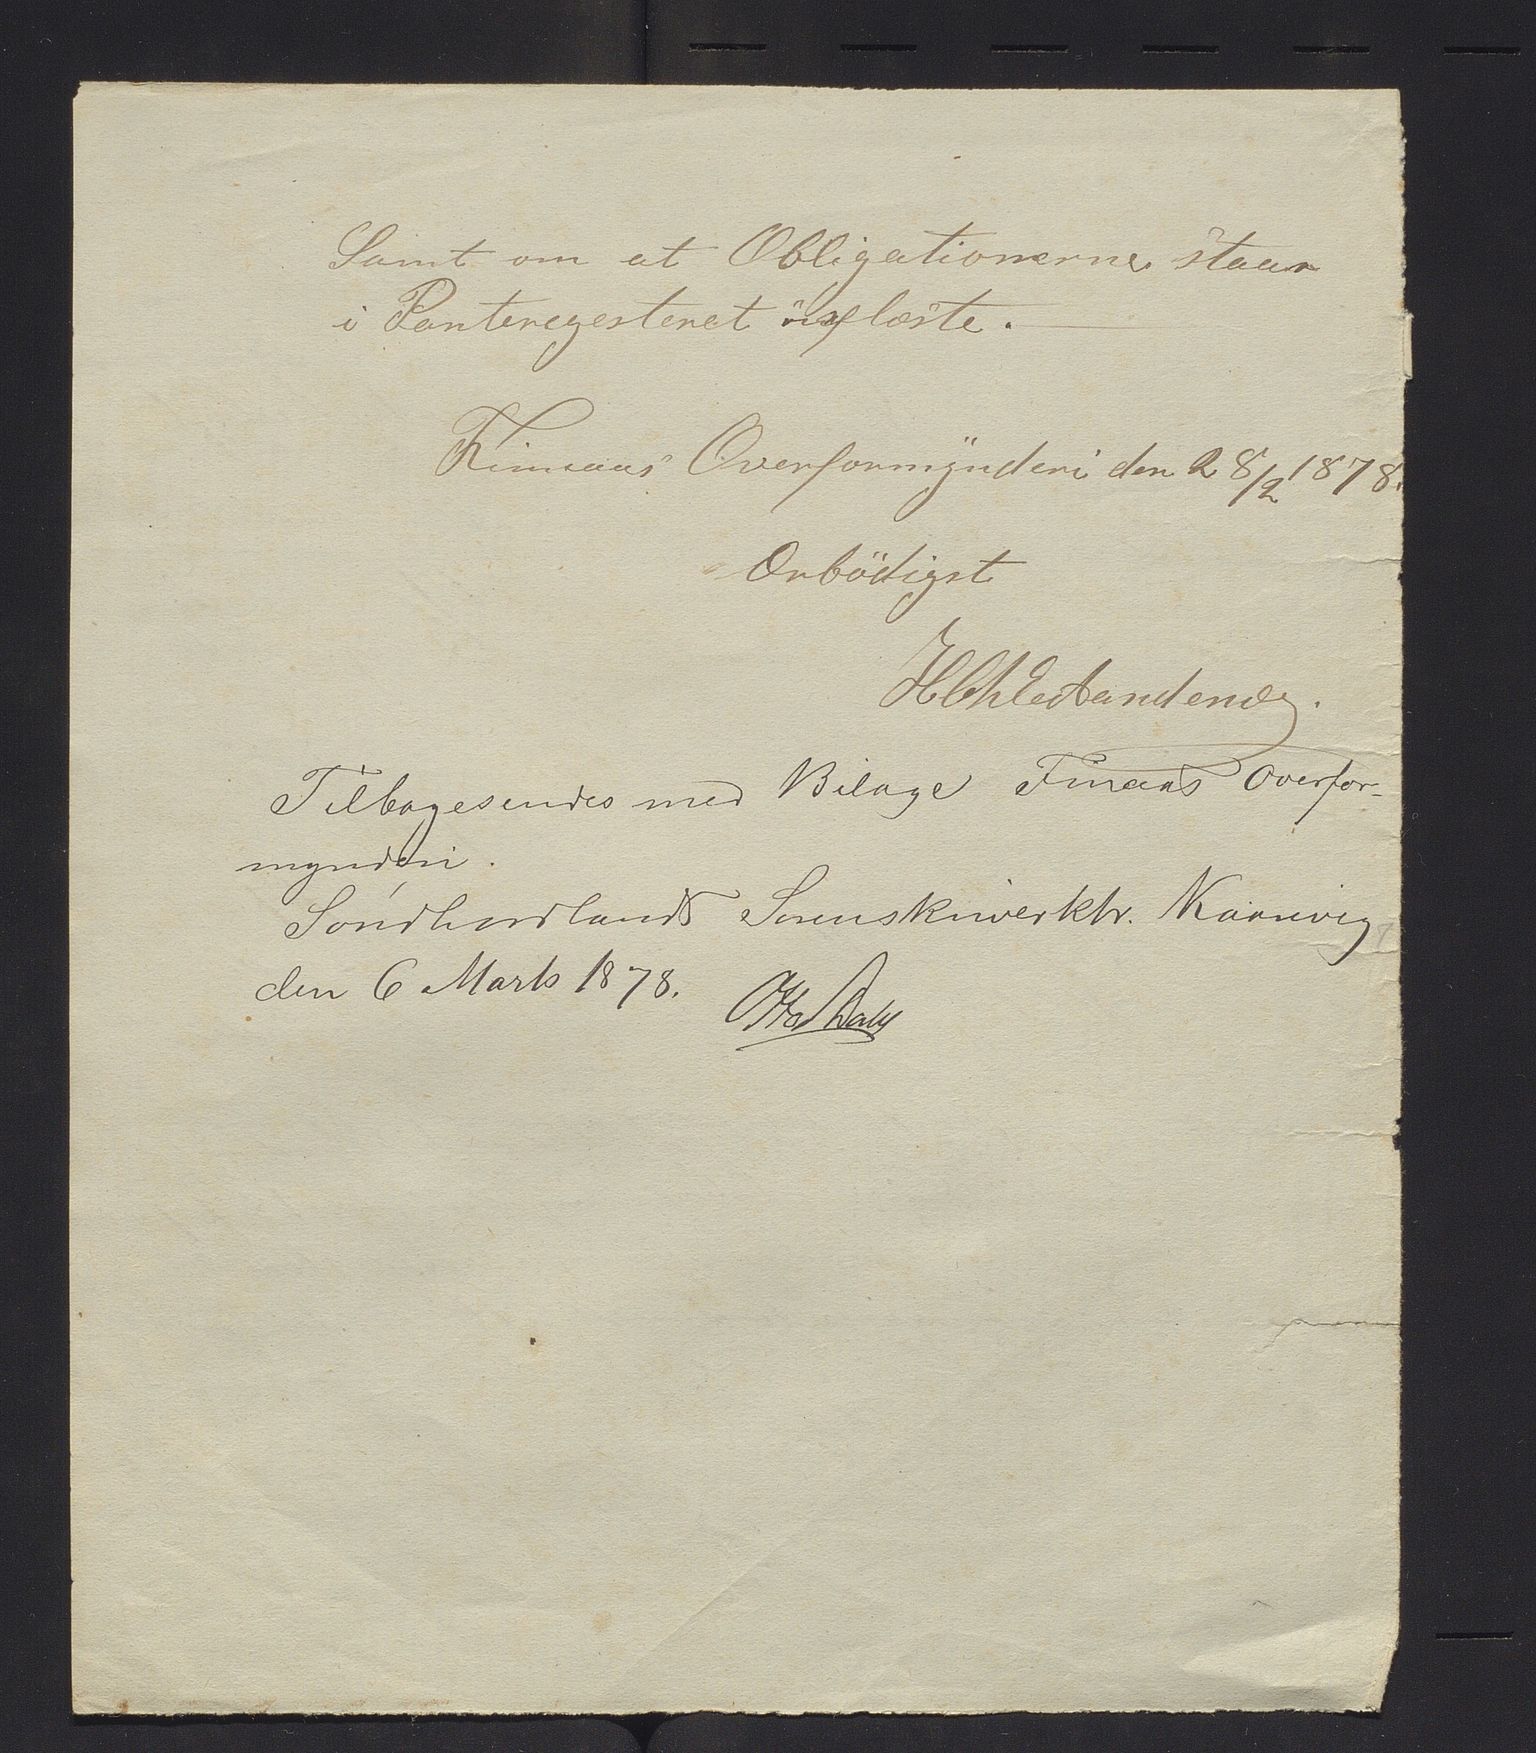 Samt om at Obligationerne staar
i Panteregesteret uaflæste.
Finnaas Overformÿnderi den 28/2 1878.
Ærbödigst
Tilbagesendes med Bilage Finnaas Overfor-
mynderi.
Söndhordlands Sorenskriverktr. Kaarevig
den 6 Marts 1878. Otto Dahl